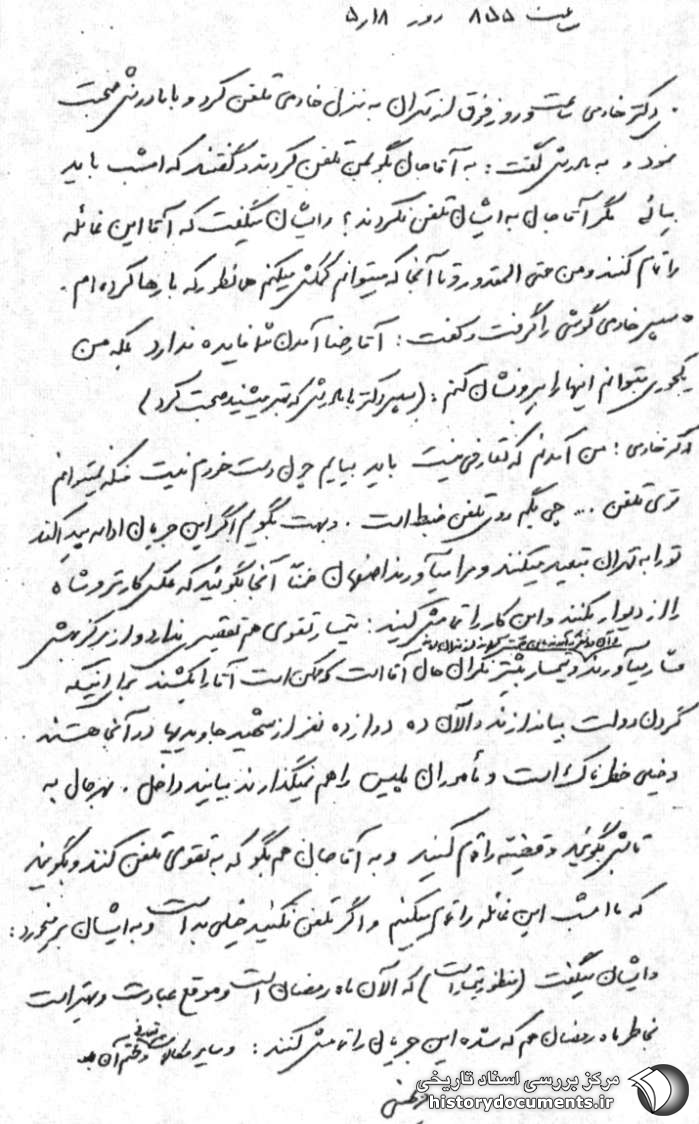 ساعت ۸۵۵ روز ۵ر۱۸
دکتر خادمی ساعت و روز فوق از تهران به منزل خادمی تلفن کرد و با مادرش صحبت
نمود و به مادرش گفت: به آقا جان بگو بمن تلفن کردند و گفتند که امشب باید
بیائی مگر آقا جان به ایشان تلفن نکردند؛ و ایشان میگفت که آقا این غائله
را تمام کنند و من حتی المقدور و تا آنجا که میتوانم کمکش میکنم همانطور که بارها کرده‌ام.
سپس خادمی گوشی را گرفت و گفت: آقا رضا آمدن شما فایده ندارد مگر من
یکجوری بتوانم اینها را بیرونشان کنم: (سپس دکتر با مادرش که میشنید صحبت کرد)
دکتر خادمی: من آمدنم که تعارفی نیست باید بیایم چون دست خودم نیست منکه نمیتوانم
توی تلفن ... چی بگم روی تلفن ضبط است. بهت بگویم اگر این جریان ادامه پیدا کند
تو را به تهران تبعید میکنند و مرا میآورند اصفهان ضمناً آنجا بگوئید که عکس کارتر و شاه
را از دیوار بکنند و این کار را تمامش کنید. تیمسار تقوی هم تقصیری ندارد و از مرکز بهش
فشار میآورند و تیمسار بیشتر نگران حال آقا است که ممکن است آقا را بکشند برای اینکه
گردن دولت بیاندازند و الان ده دوازده نفر از شهید جاویدیها در آنجا هستند
و خیلی خطرناک است و مأموران پلیس را هم نمیگذارند بیایند داخل. بهرحال به
آقاش بگوئید و قضیه را تمام کنید و به آقا جان هم بگو که به تقوی تلفن کنند و بگویند
که ما امشب این غائله را تمام میکنیم و اگر تلفن نکنید خیلی بد است و به ایشان برمیخورد:
و ایشان میگفت (منظور تیمسار است) که الان ماه رمضان است و موقع عبادت و بهتر است
بخاطر ماه رمضان هم که شده این جریان را تمامش کنند: و سایر مطالب
مرکز بررسی اسناد تاریخی
historydocuments.ir